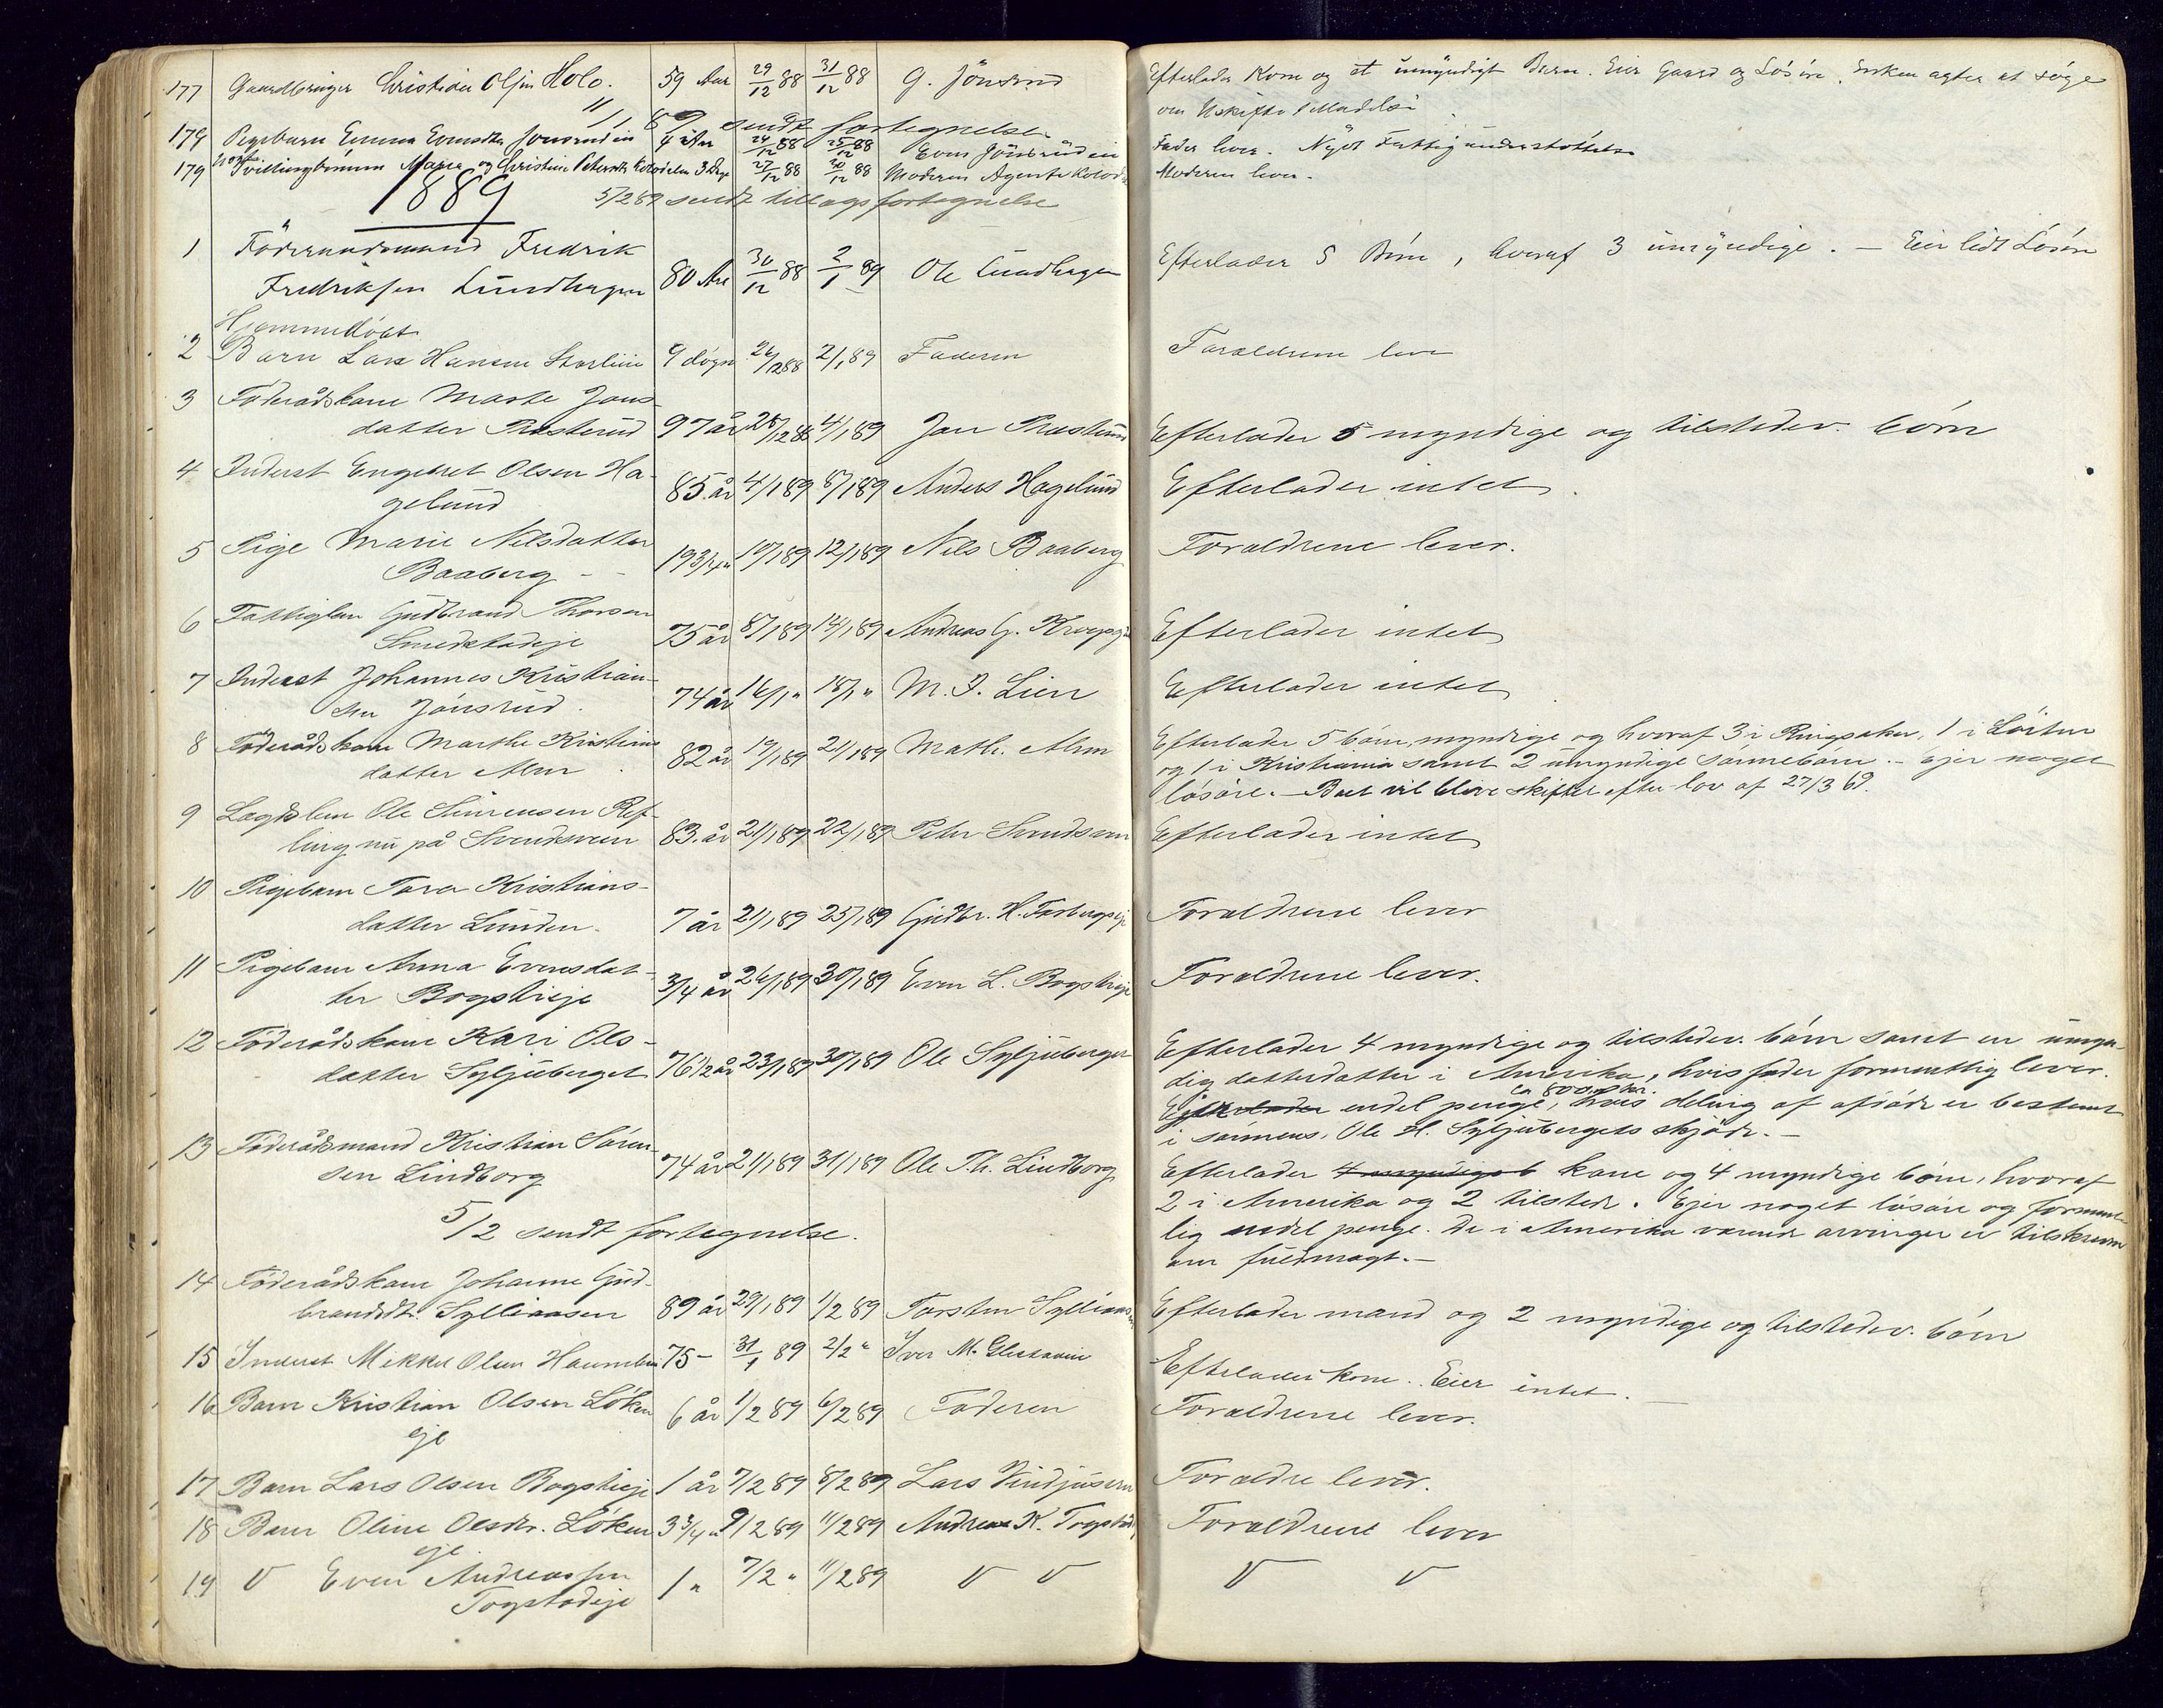 177 Gaardbruger Christian Olsen Holo. 59 Aar 29/12 88 31/12 88 G. Jönsrud Efterlader Kone og et umyndigt Barn. Eier Gaard og Løsøre. Enken agter at søge
om Uskifte
sendt fortegnelse
179 Pigebarn Emma Evensdtr 4 Aar 24/12 88 25/12 88 Even Fader lever. Nydt Fattigunderstøttelse
179 Tvillingbørnene Maria og Christine 3 Dage 27/12 88 30/12 88 Moderen Agente Moderen lever.
1889
5/2 89 sendt tillægsfortegnelse
1 Föderaadsmand Fredrik
Fredriksen Lundhagen 80 Aar 30/12 88 2/1 89 Ole Lundhagen Efterlader 5 Börn, hvoraf 3 umyndige. – Eier lidt Lösöre
Hjemmedöbt
2 Barn Lars Hansen Storlien 9 døgn 26/12 88 2/1 89 Faderen Forældrene lever
3 Föderådskone Marte Jons-
datter Prosterud 97 år 28/12 88 4/1 89 Jon Prosterud Efterlader 5 myndige og tilstedev. börn
4 Inderst Engebret Olsen Ha-
gelund 85 år 4/1 89 8/1 89 Anders Hagelund Efterlader intet.
5 Pige Marie Nilsdatter
Baaberg – – 19 3/4 " 10/1 89 12/1 89 Nils Baaberg Forældrene lever.
6 Fattiglem Gudbrand Thorsen
Smedstadeje 75 år 8/1 89 14/1 89 Andreas G. Efterlader intet
7 Inderst Johannes Kristian-
sen Jönsrud. 74 år 16/1 " 18/1 " M. J. Lien Efterlader intet
8 Föderådskone Marthe Kristians
datter Alm. 82 år 19/1 89 21/1 89 Math. Alm Efterlader 5 börn, myndige og hvoraf 3 i Ringsaker, 1 i Löiten
og 1 i Kristiania samt 2 umyndige sönnebörn. – Ejer noget
lösöre. – Boet vil blive skiftet efter lov af 27/3 69.
9 Lægdslem Ole Simensen Ref-
ling nu på Svendsveen 83 år 21/1 89 22/1 89 Peter Svendsveen Efterlader intet
10 Pigebarn Tora Kristians-
datter Lunden. 7 år 21/1 89 25/1 89 Gudbr. H. Farbergseje Forældrene lever
11 Pigebarn Anna Evensdat-
ter Bogstieje 3/4 år 26/1 89 30/1 89 Even L. Bogstieje Forældrene lever.
12 Föderådskone Kari Ols-
datter Syljuberget 76 1/2 år 23/1 89 30/1 89 Ole Syljuberget Efterlader 4 myndige og tilstedev. börn samt en umyn-
dig datterdatter i Amerika, hvis fader formentlig lever.
Efterlader endel penge, ca 800 kr. hvis deling af afdöde er bestemt
i sönnens, Ole H. Syljubergets skjöde. –
13 Föderådsmand Kristian Sören-
sen Lindborg 74 år 21/1 89 31/1 89 Ole Th. Lindborg Efterlader 4 myndige b kone og 4 myndige börn, hvoraf
2 i Amerika og 2 tilstede. Ejer noget lösöre og forment-
lig endel penge. De i Amerika værende arvinger er tilskrevne
om fuldmagt. –
5/2 sendt fortegnelse.
14 Föderådskone Johanne Gud-
brandsdt. Sylliaasen 89 år 29/1 89 1/2 89 Torsten Sylliaasen Efterlader mand og 2 myndige og tilstedev. börn
15 Inderst Mikkel Olsen 75 – 31/1 89 2/2 " Iver M. Efterlader kone. Eier intet.
16 Barn Kristian Olsen Löken
eje 6 år 1/2 89 6/2 89 Faderen Forældrene lever.
17 Barn Lars Olsen Bogstieje 1 år 7/2 89 8/2 89 Lars Vindjusveen Forældre lever.
18 Barn Oline Olsdtr. Löken
eje 3 3/4 " 9/2 89 11/2 89 Andreas K. Togstad Forældrene lever
19 V Even Andreassen
Togstadeje 1 " 7/2 " 11/2 89 V V V V